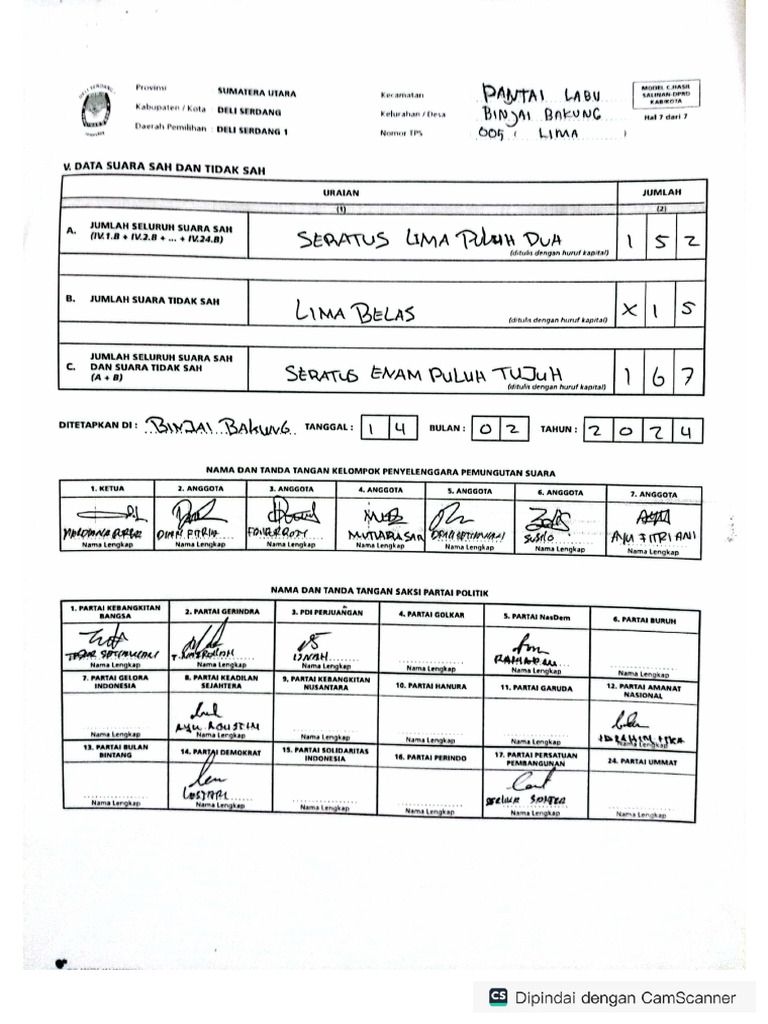 DELI SERDANG
Provinsi SUMATERA UTARA
Kabupaten / Kota : DELI SERDANG
Daerah Pemilihan : DELI SERDANG 1
Kecamatan PANTAI LABU
Kelurahan / Desa BINJAI BAKUNG
Nomor TPS 005 ( LIMA )
MODEL C.HASIL
SALINAN-DPRD
KAB/KOTA
Hal 7 dari 7
V. DATA SUARA SAH DAN TIDAK SAH
URAIAN JUMLAH
(1) (2)
A. JUMLAH SELURUH SUARA SAH
(IV.1.B + IV.2.B + ... + IV.24.B)
SERATUS LIMA PULUH DUA 1 5 2
(ditulis dengan huruf kapital)
B. JUMLAH SUARA TIDAK SAH
LIMA BELAS X 1 5
(ditulis dengan huruf kapital)
C. JUMLAH SELURUH SUARA SAH
DAN SUARA TIDAK SAH
(A + B)
SERATUS ENAM PULUH TUJUH 1 6 7
(ditulis dengan huruf kapital)
DITETAPKAN DI : BINJAI BAKUNG TANGGAL : 1 4 BULAN : 0 2 TAHUN : 2 0 2 4
NAMA DAN TANDA TANGAN KELOMPOK PENYELENGGARA PEMUNGUTAN SUARA
1. KETUA 2. ANGGOTA 3. ANGGOTA 4. ANGGOTA 5. ANGGOTA 6. ANGGOTA 7. ANGGOTA
DIAN FITRIA MUTIARA SARI SUSILO AYU FITRIANI
Nama Lengkap Nama Lengkap Nama Lengkap Nama Lengkap Nama Lengkap Nama Lengkap Nama Lengkap
NAMA DAN TANDA TANGAN SAKSI PARTAI POLITIK
1. PARTAI KEBANGKITAN BANGSA 2. PARTAI GERINDRA 3. PDI PERJUANGAN 4. PARTAI GOLKAR 5. PARTAI NasDem 6. PARTAI BURUH
Nama Lengkap Nama Lengkap Nama Lengkap Nama Lengkap Nama Lengkap Nama Lengkap
7. PARTAI GELORA INDONESIA 8. PARTAI KEADILAN SEJAHTERA 9. PARTAI KEBANGKITAN NUSANTARA 10. PARTAI HANURA 11. PARTAI GARUDA 12. PARTAI AMANAT NASIONAL
AYU AGUSTIN
Nama Lengkap Nama Lengkap Nama Lengkap Nama Lengkap Nama Lengkap Nama Lengkap
13. PARTAI BULAN BINTANG 14. PARTAI DEMOKRAT 15. PARTAI SOLIDARITAS INDONESIA 16. PARTAI PERINDO 17. PARTAI PERSATUAN PEMBANGUNAN 24. PARTAI UMMAT
Nama Lengkap Nama Lengkap Nama Lengkap Nama Lengkap Nama Lengkap Nama Lengkap
CS Dipindai dengan CamScanner